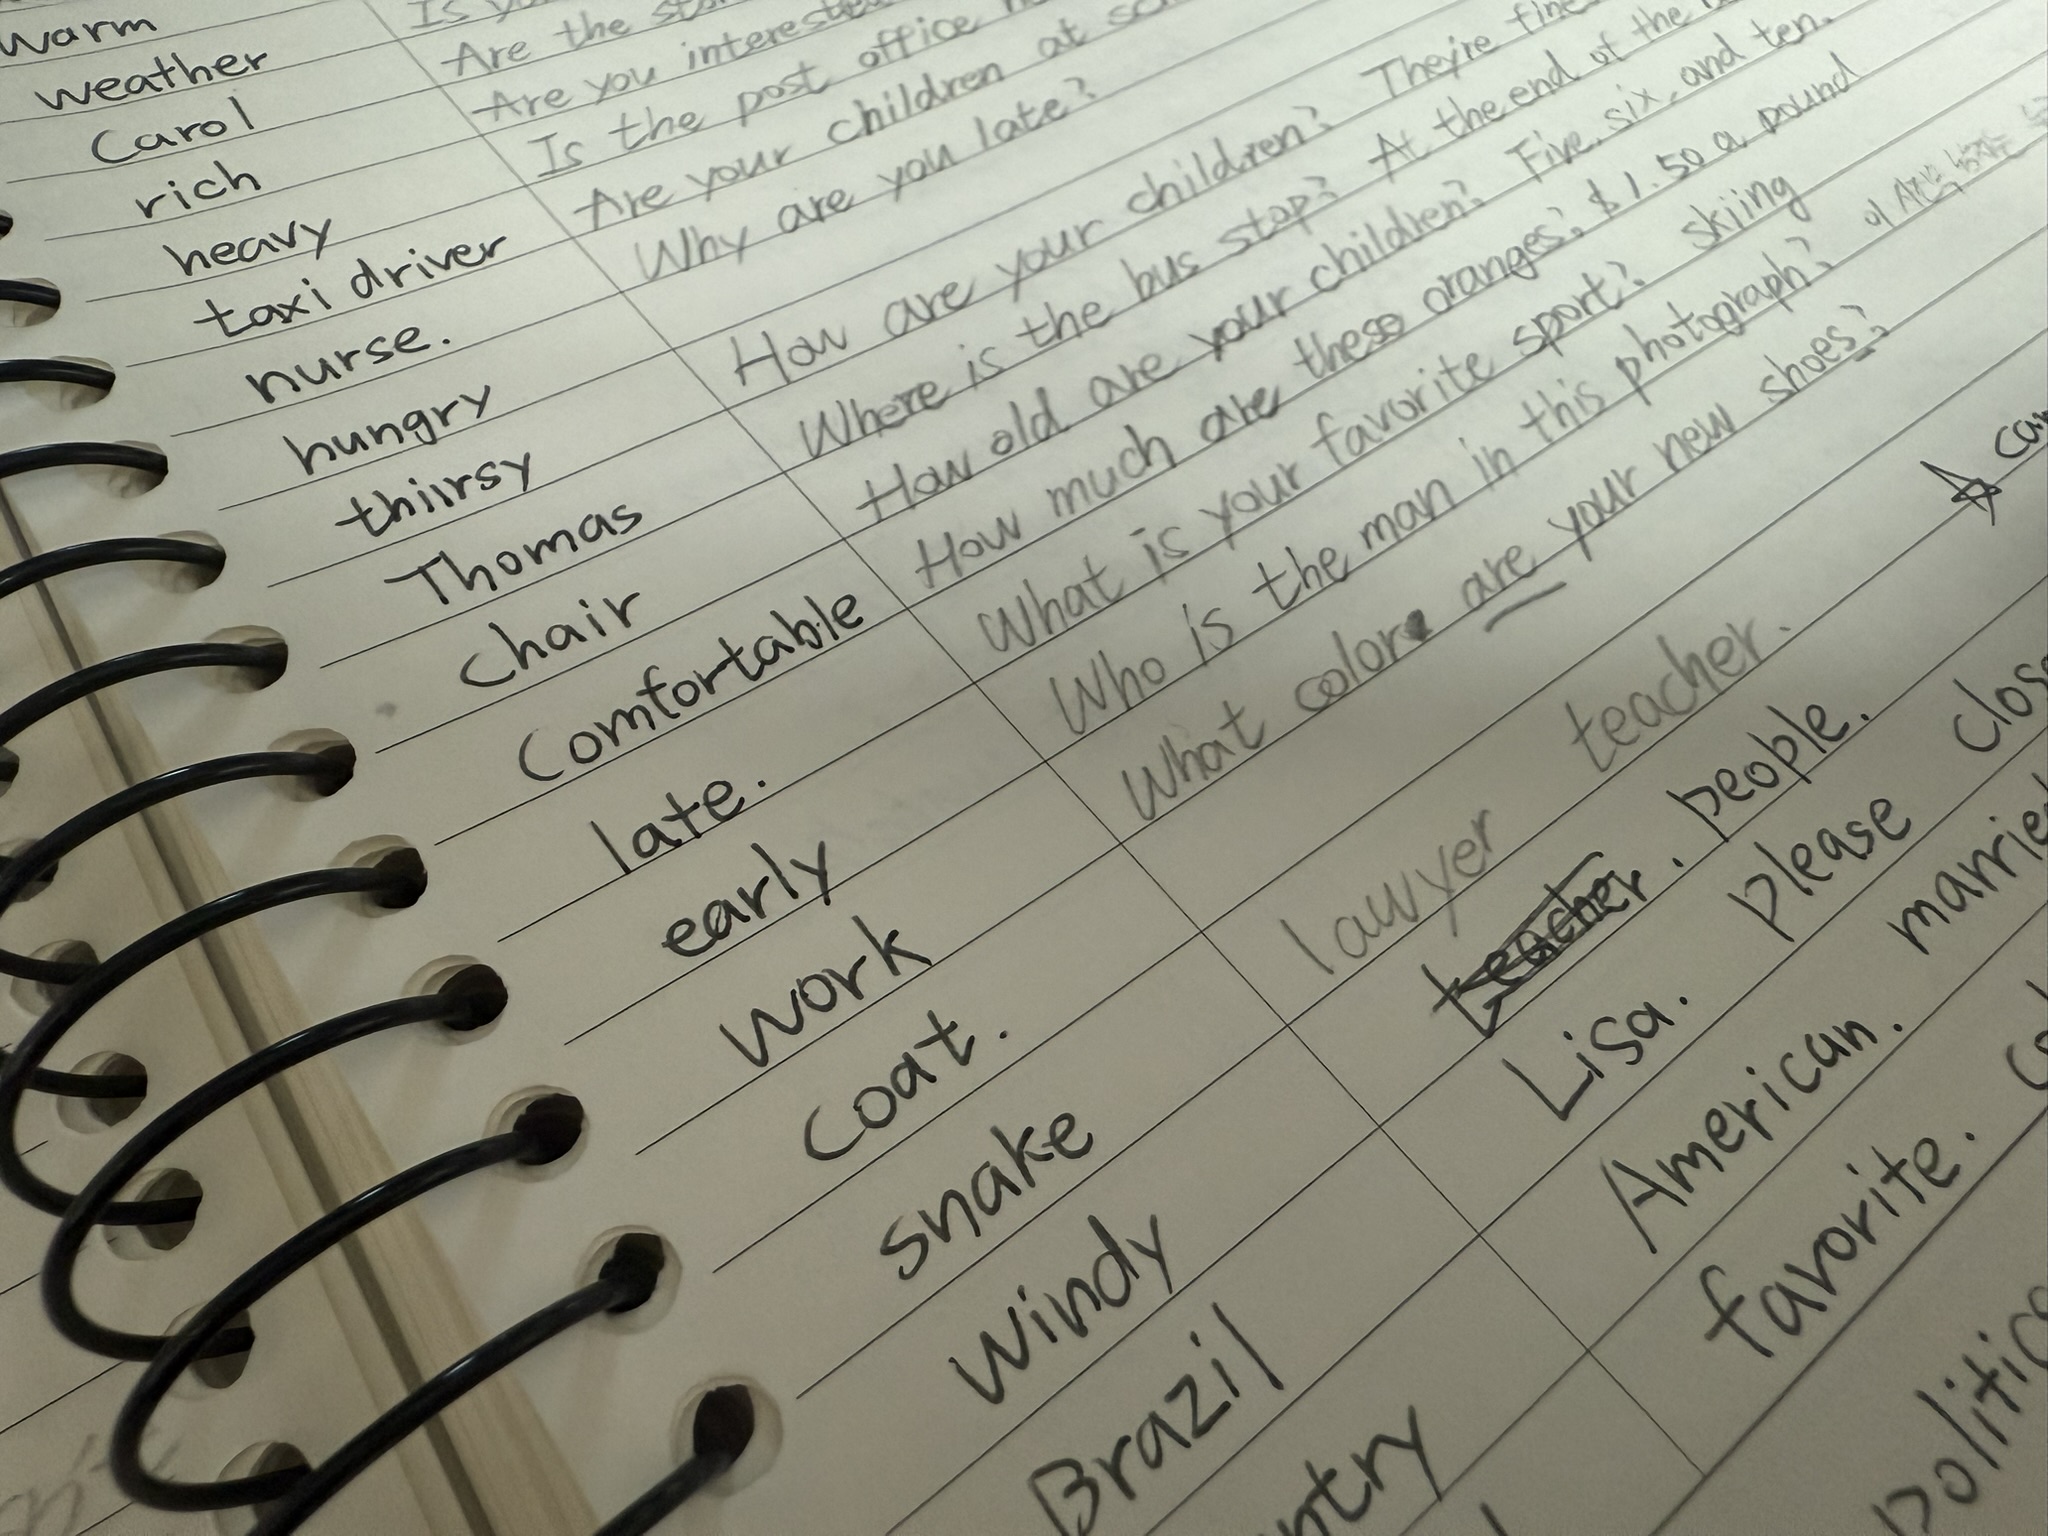 warm
weather
Carol
rich
heavy
taxi driver
nurse.
hungry
thiirsy
Thomas
chair
Comfortable
late.
early
work
coat.
snake
windy
Brazil
ntry
Is
Are the
Are you
Is the post office
Are your children at
Why are you late?
How are your children? They're fine
Where is the bus stop? At the end of the
How old are your children? Five, six, and ten.
How much are these oranges? $1.50 a pound
What is your favorite sport? skiing
Who is the man in this photograph? 이
What color are your new shoes?
lawyer teacher.
teacher. people.
Lisa. please
American.
favorite.